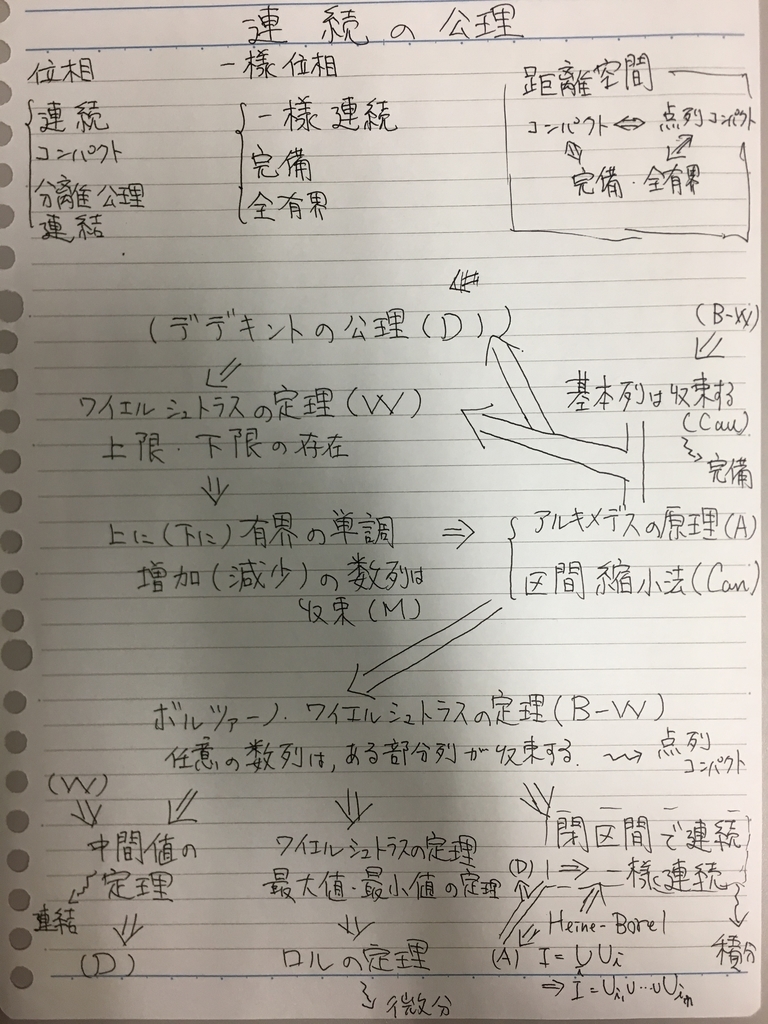 連続の公理
位相
連続
コンパクト
分離公理
連結
一様位相
一様連続
完備
全有界
距離空間
コンパクト ⇔ 点列コンパクト
完備・全有界
(デデキントの公理(D))
ワイエルシュトラスの定理(W)
上限・下限の存在
(B-W)
基本列は収束する
(Cau)
完備
上に(下に)有界の単調
増加(減少)の数列は
収束(M)
⇒
アルキメデスの原理(A)
区間縮小法(Can)
ボルツァーノ・ワイエルシュトラスの定理(B-W)
任意の数列は,ある部分列が収束する. 点列
コンパクト
(W)
中間値の
定理
連結
(D)
ワイエルシュトラスの定理
最大値・最小値の定理
ロルの定理
微分
閉区間で連続
⇒ 一様連続
(D)
Heine-Borel
(A) I=∪Ui
⇒ I=Ui₁∪…∪Uiₙ
積分